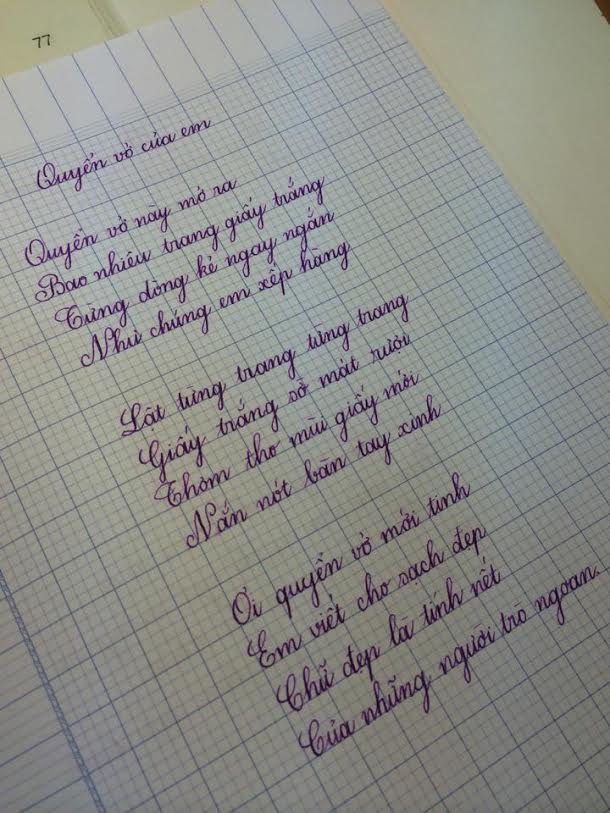 77
Quyển vở của em
Quyển vở này mở ra
Bao nhiêu trang giấy trắng
Từng dòng kẻ ngay ngắn
Như chúng em xếp hàng
Lật từng trang từng trang
Giấy trắng sờ mát rượi
Thơm tho mùi giấy mới
Nắn nót bàn tay xinh
Ơi quyển vở mới tinh
Em viết cho sạch đẹp
Chữ đẹp là tính nết
Của những người trò ngoan.